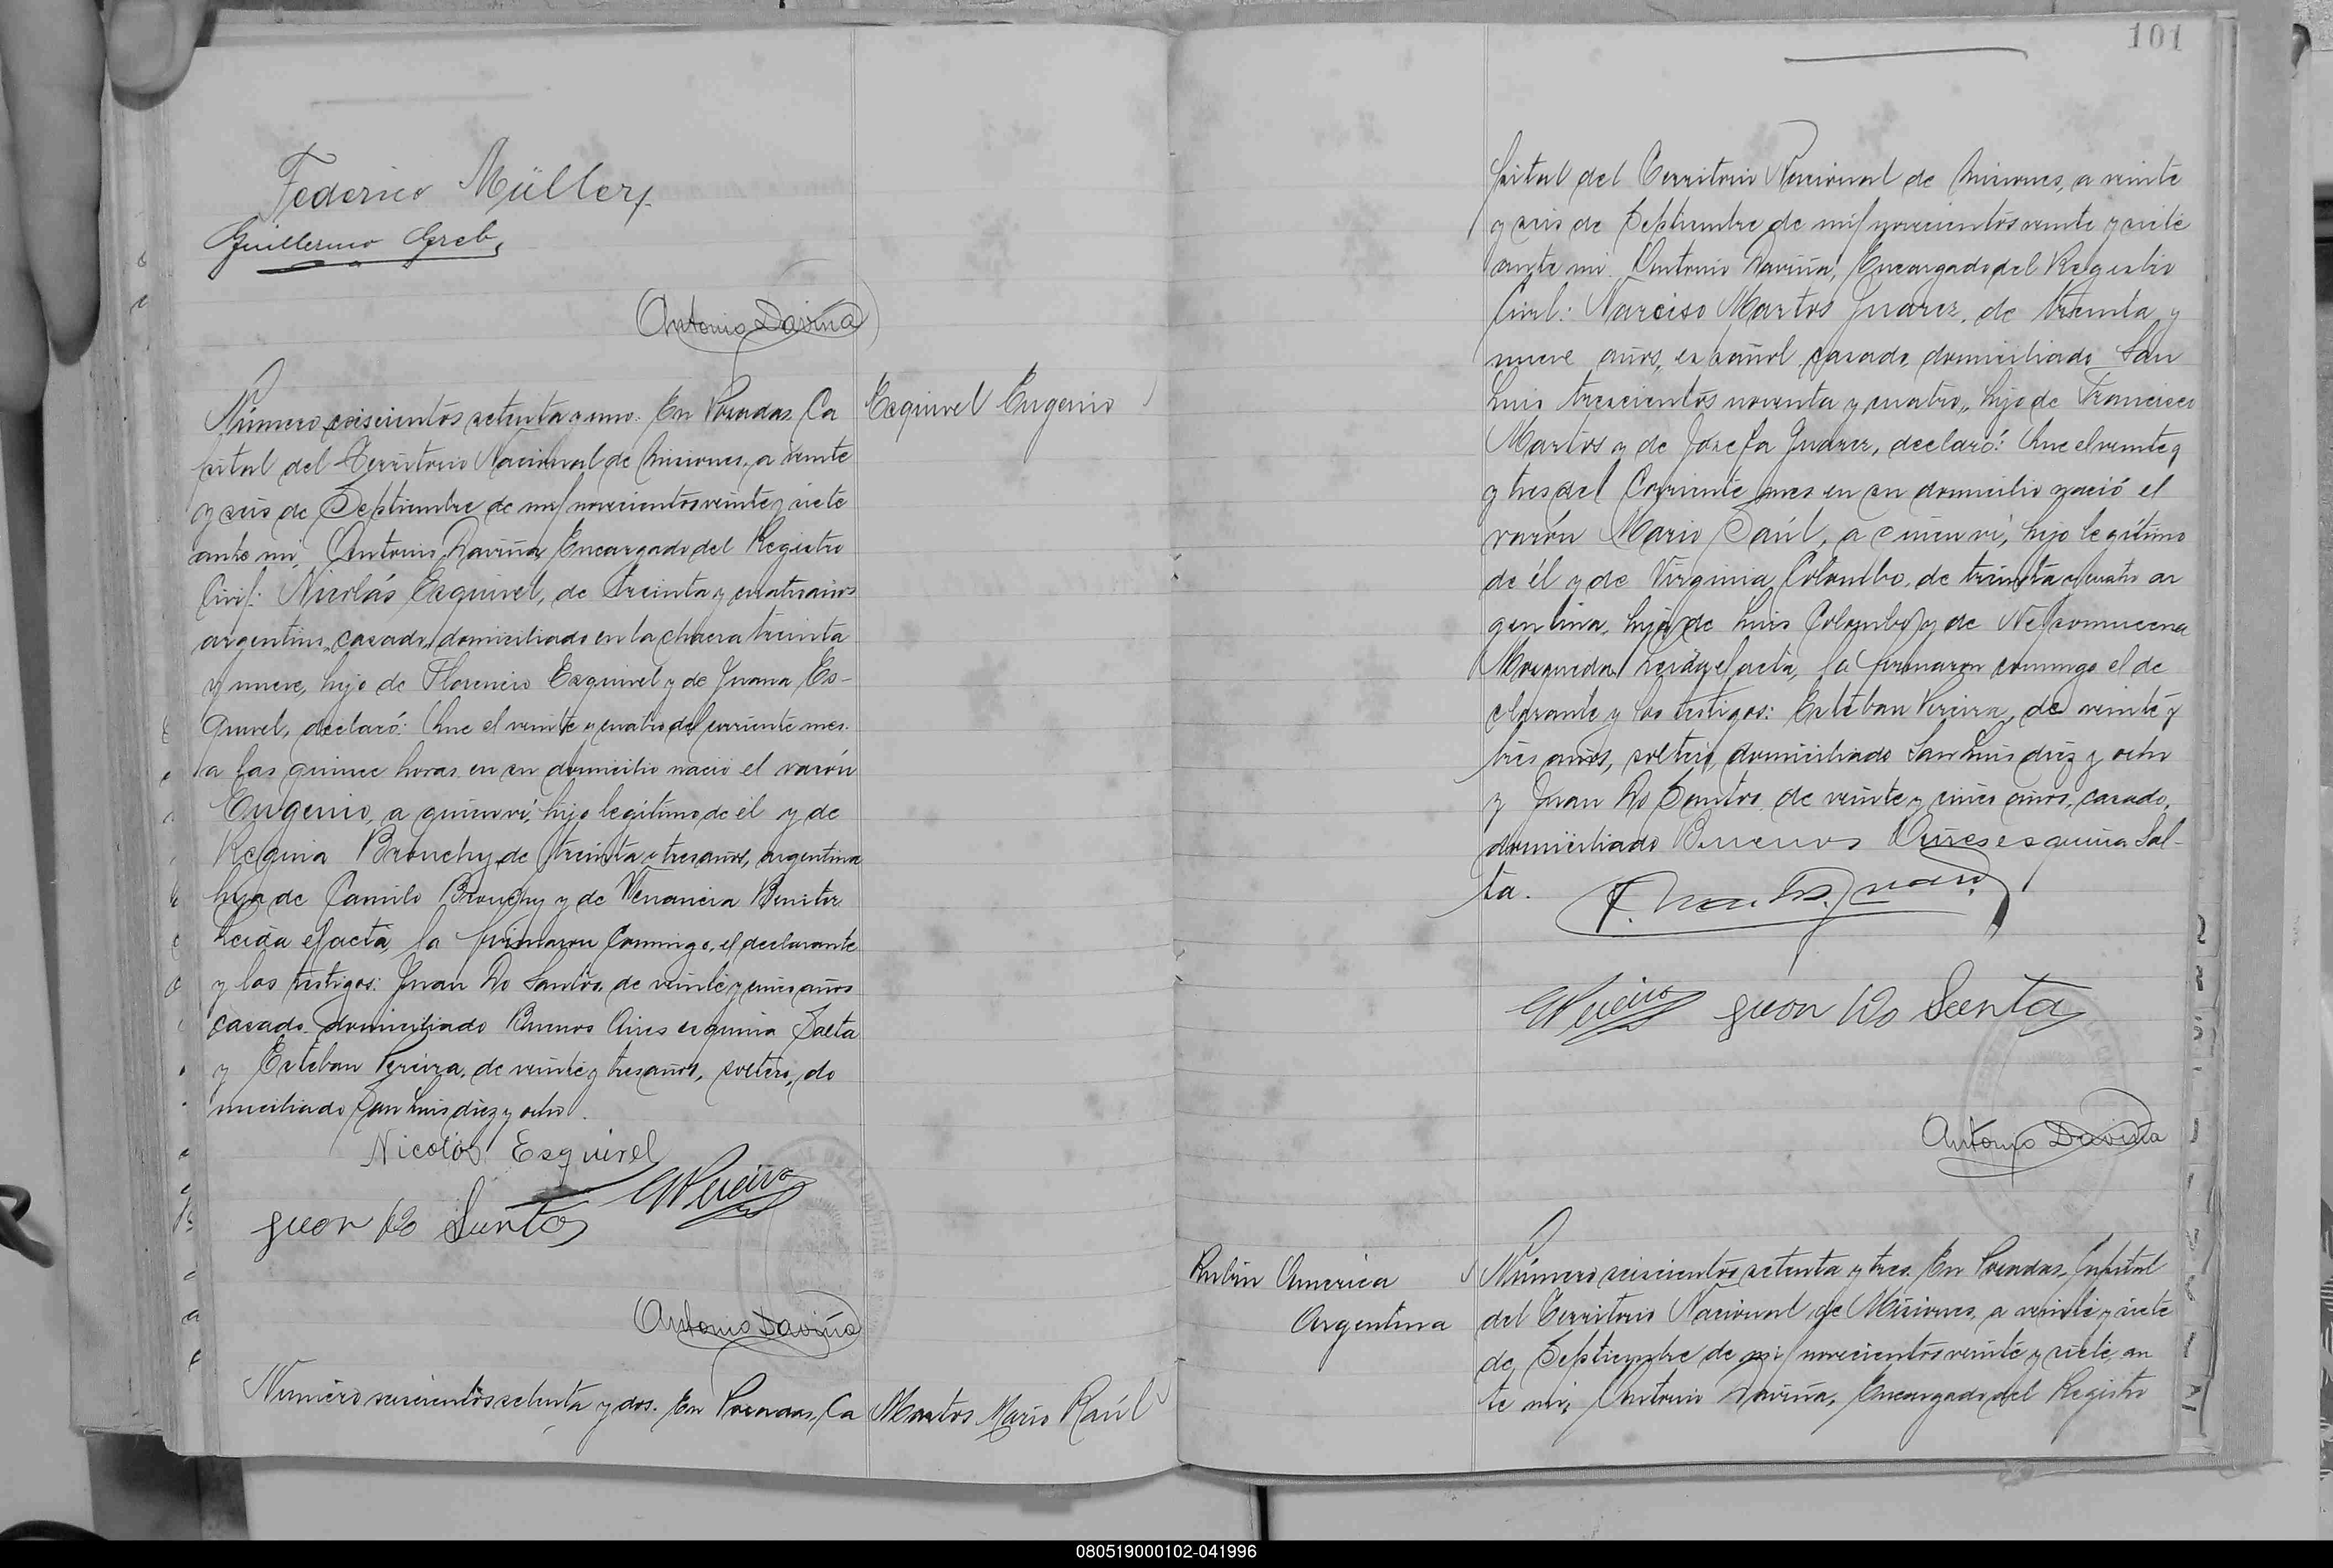 Federico Müller
Guillermo Greb
Antonio Daviña
Esquivel Eugenio
Número seiscientos setenta y uno. En Posadas, Ca
pital del Territorio Nacional de Misiones, a veinte
y seis de Septiembre de mil novecientos veinte y siete
ante mí, Antonio Daviña, Encargado del Registro
Civil: Nicolás Esquivel, de treinta y cuatro años
argentino, casado, domiciliado en la chacra treinta
y nueve, hijo de Florencio Esquivel y de Juana Es-
quivel, declaró: Que el veinte y cuatro del corriente mes
a las quince horas en su domicilio nació el varón
Eugenio, a quien ví, hijo legítimo de él y de
Regina Bronchy de treinta y tres años, argentina
hija de Camilo Bronchy y de Venancia Benitez
Leída el acta, la firmaron conmigo, el declarante
y los testigos: Juan Do Santos, de veinte y cinco años
casado, domiciliado Buenos Aires esquina Salta
y Esteban Pereira, de veinte y tres años, soltero, do
miciliado San Luis diez y ocho.
Nicolás Esquivel
EPereira
Juan Do Santos
Antonio Daviña
Número seiscientos setenta y dos. En Posadas, Ca
Martos Mario Raúl
101
pital del Territorio Nacional de Misiones, a veinte
y seis de Septiembre de mil novecientos veinte y siete
ante mí. Antonio Daviña, Encargado del Registro
Civil: Narciso Martos Juarez, de treinta y
nueve años, español, casado, domiciliado San
Luis trescientos noventa y cuatro, hijo de Francisco
Martos y de Josefa Juarez, declaró: Que el veinte y
y tres del corriente mes en su domicilio nació el
varón Mario Raúl, a quien ví, hijo legítimo
de él y de Virginia Colombo, de treinta y cuatro ar
gentina, hija de Luis Colombo y de Nepomucena
Mosqueda. Leída el acta, la firmaron conmigo el de
clarante y los testigos: Esteban Pereira, de veinte y
tres años, soltero, domiciliado San Luis diez y ocho
y Juan Do Santos, de veinte y cinco años, casado,
domiciliado Buenos Aires esquina Sal-
ta.
EPereira Juan Do Santos
Antonio Daviña
Rubin America
Argentina
Número seiscientos setenta y tres. En Posadas, Capital
del Territorio Nacional de Misiones, a veinte y siete
de Septiembre de mil novecientos veinte y siete, an
te mí, Antonio Daviña, Encargado del Registro
080519000102-041996